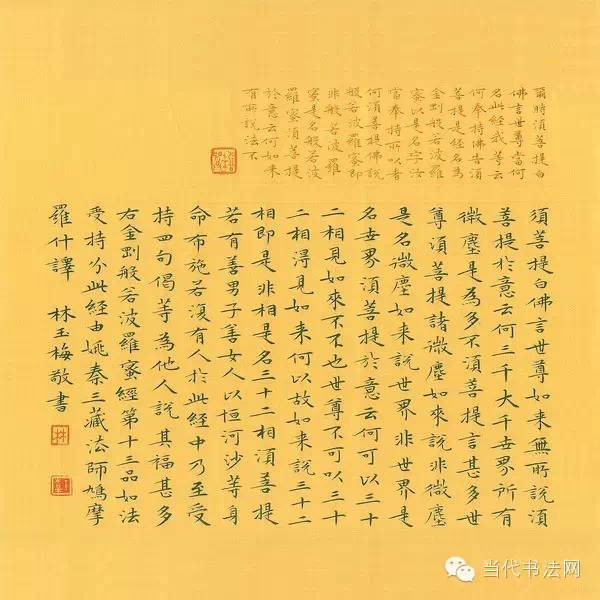 爾時須菩提白
佛言世尊當何
名此經我等云
何奉持佛告須
菩提是經名為
金剛般若波羅
蜜以是名字汝
當奉持所以者
何須菩提佛說
般若波羅蜜即
非般若波羅
蜜是名般若波
羅蜜須菩提
於意云何如來
有所說法不
須菩提白佛言世尊如来無所說須
菩提於意云何三千大千世界所有
微塵是為多不須菩提言甚多世
尊須菩提諸微塵如來說非微塵
是名微塵如来說世界非世界是
名世界須菩提於意云何可以三十
二相見如來不不也世尊不可以三十
二相得見如来何以故如来說三十二
相即是非相是名三十二相須菩提
若有善男子善女人以恒河沙等身
命布施若復有人於此經中乃至受
持四句偈等為他人說其福甚多
右金剛般若波羅蜜經第十三品如法
受持分此經由姚秦三藏法師鳩摩
羅什譯 林玉梅敬書
当代书法网